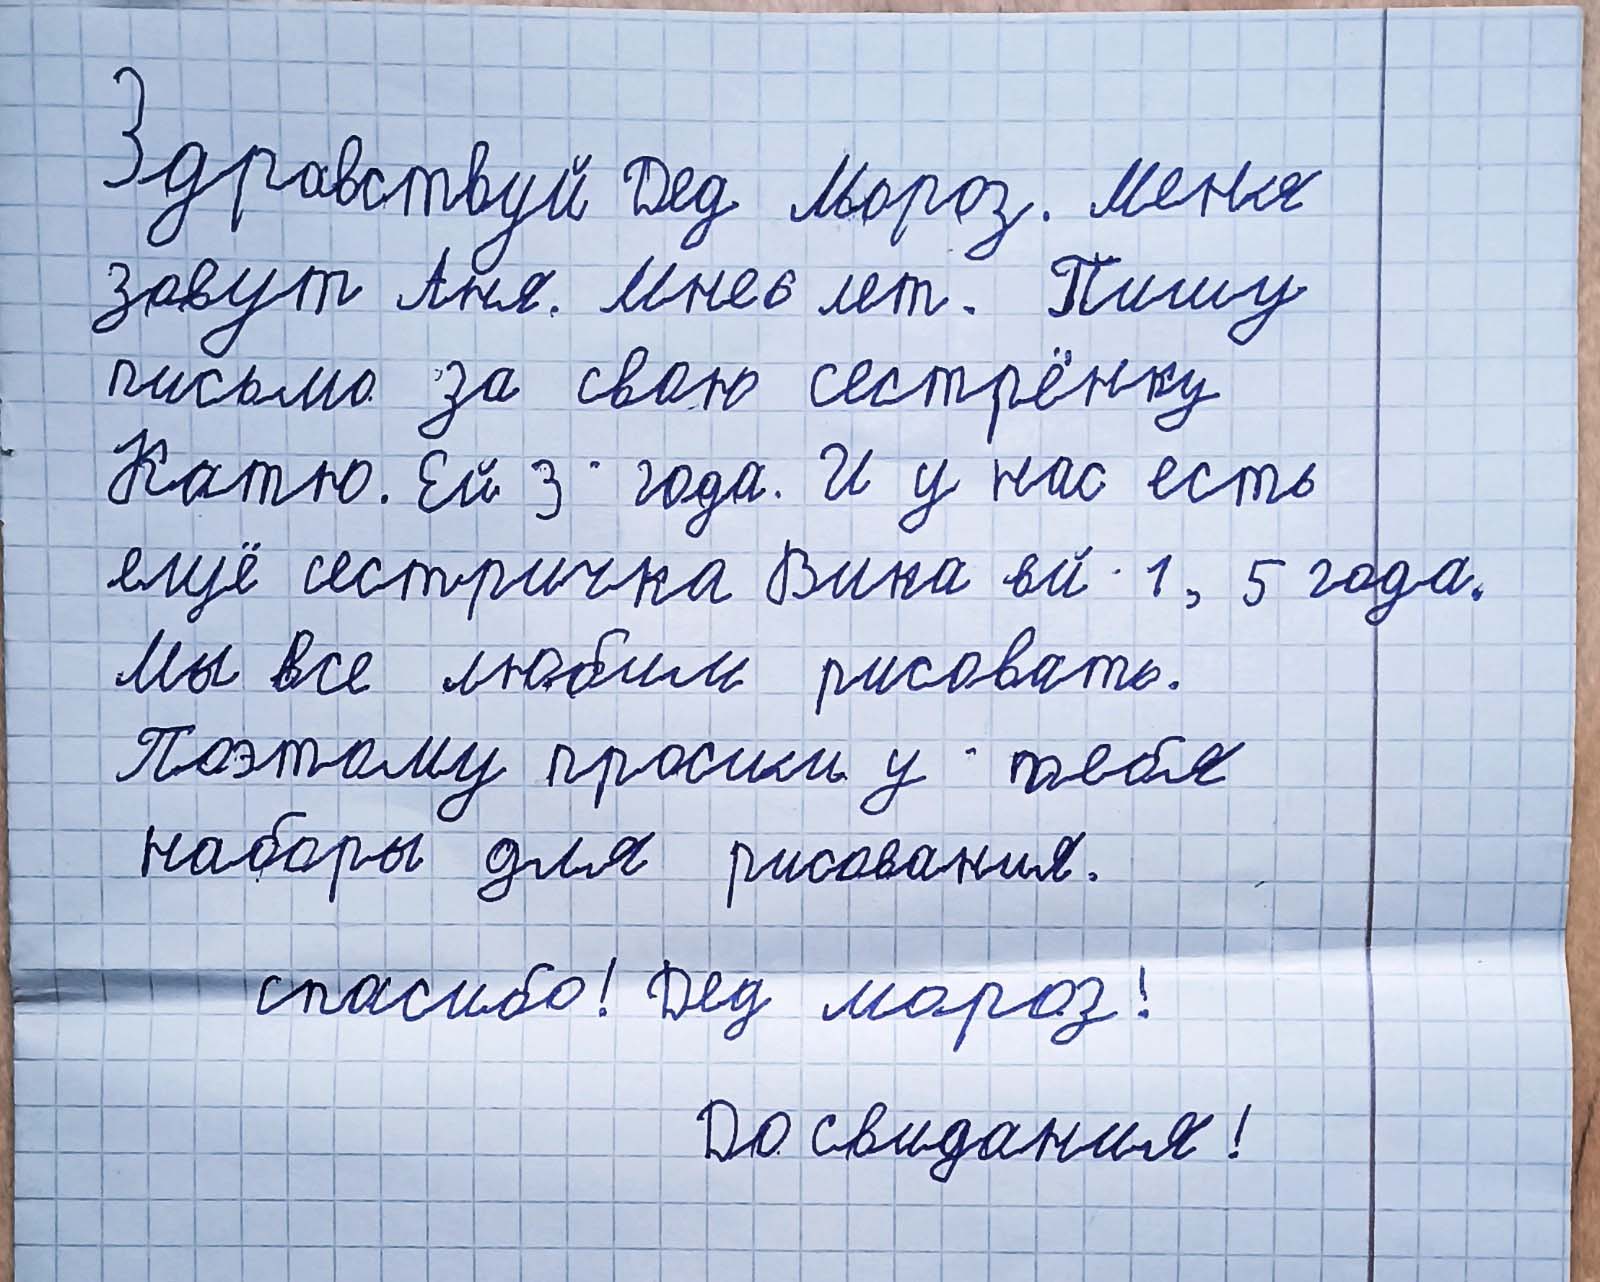 Здравствуй Дед Мороз. Меня
зовут Аня. Мне 6 лет. Пишу
письмо за свою сестрёнку
Катю. Ей 3 года. И у нас есть
ещё сестричка Вика ей 1,5 года.
Мы все любим рисовать.
Поэтому просим у тебя
наборы для рисования.
спасибо! Дед мороз!
До свидания!